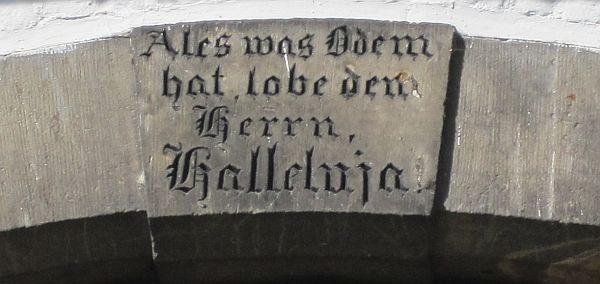 Ales was Odem
hat, lobe dem
Herrn,
Halleluja.